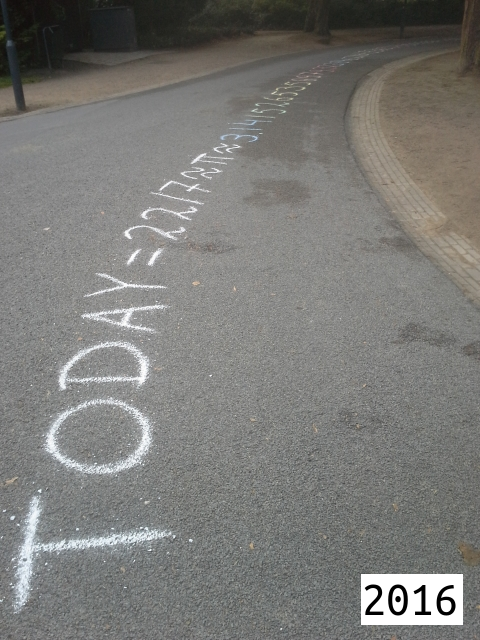 TODAY = 22/7 ≈ π ≈ 3,1415926535
2016